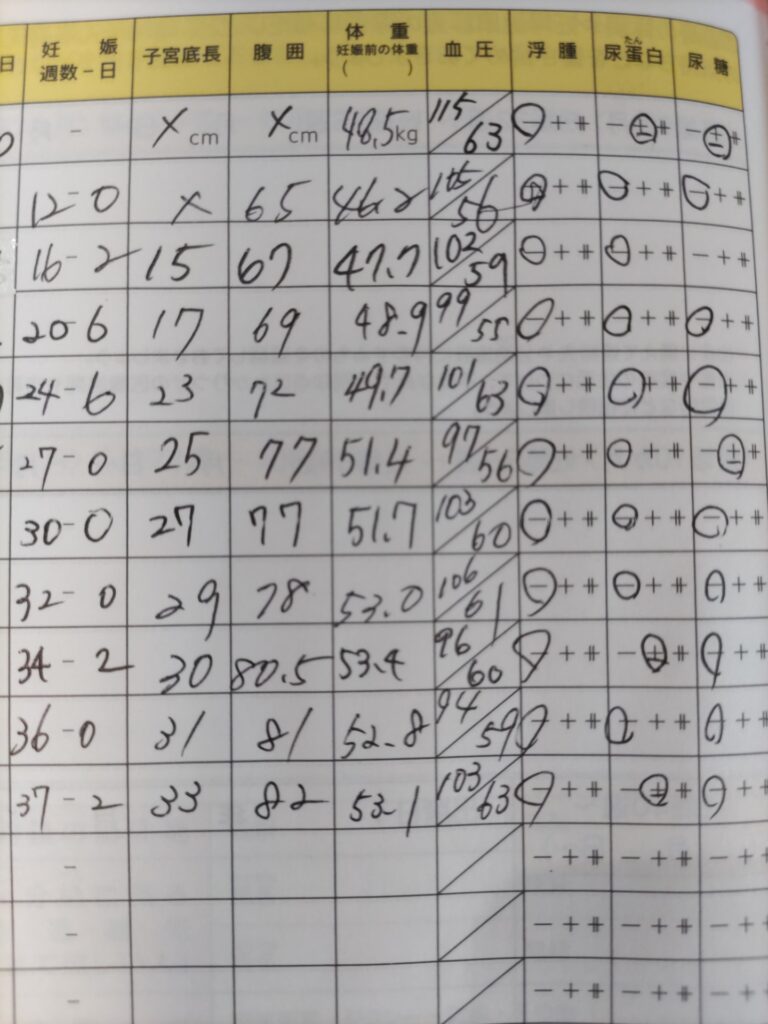 日 妊娠週数-日 子宮底長 腹囲 体重 妊娠前の体重 ( ) 血圧 浮腫 尿蛋白 たん 尿糖
- ×cm ×cm 48.5kg 115/63 - + ⧺ - ± ⧺ - ± ⧺
12-0 × 65 46.2 56 ± + ⧺ - + ⧺ - + ⧺
16-2 15 67 47.7 102/59 - + ⧺ - + ⧺ - + ⧺
20-6 17 69 48.9 99/55 - + ⧺ - + ⧺ - + ⧺
24-6 23 72 49.7 101/63 - + ⧺ - + ⧺ - + ⧺
27-0 25 77 51.4 97/56 - + ⧺ - + ⧺ - ± ⧺
30-0 27 77 51.7 103/60 - + ⧺ - + ⧺ - + ⧺
32-0 29 78 53.0 106/61 - + ⧺ - + ⧺ - + ⧺
34-2 30 80.5 53.4 96/60 - + ⧺ - ± ⧺ - + ⧺
36-0 31 81 52.8 94/59 - + ⧺ - + ⧺ - + ⧺
37-2 33 82 53.1 103/63 - + ⧺ - ± ⧺ - + ⧺
- - + ⧺ - + ⧺ - + ⧺
- - + ⧺ - + ⧺ - + ⧺
- - + ⧺ - + ⧺ - + ⧺